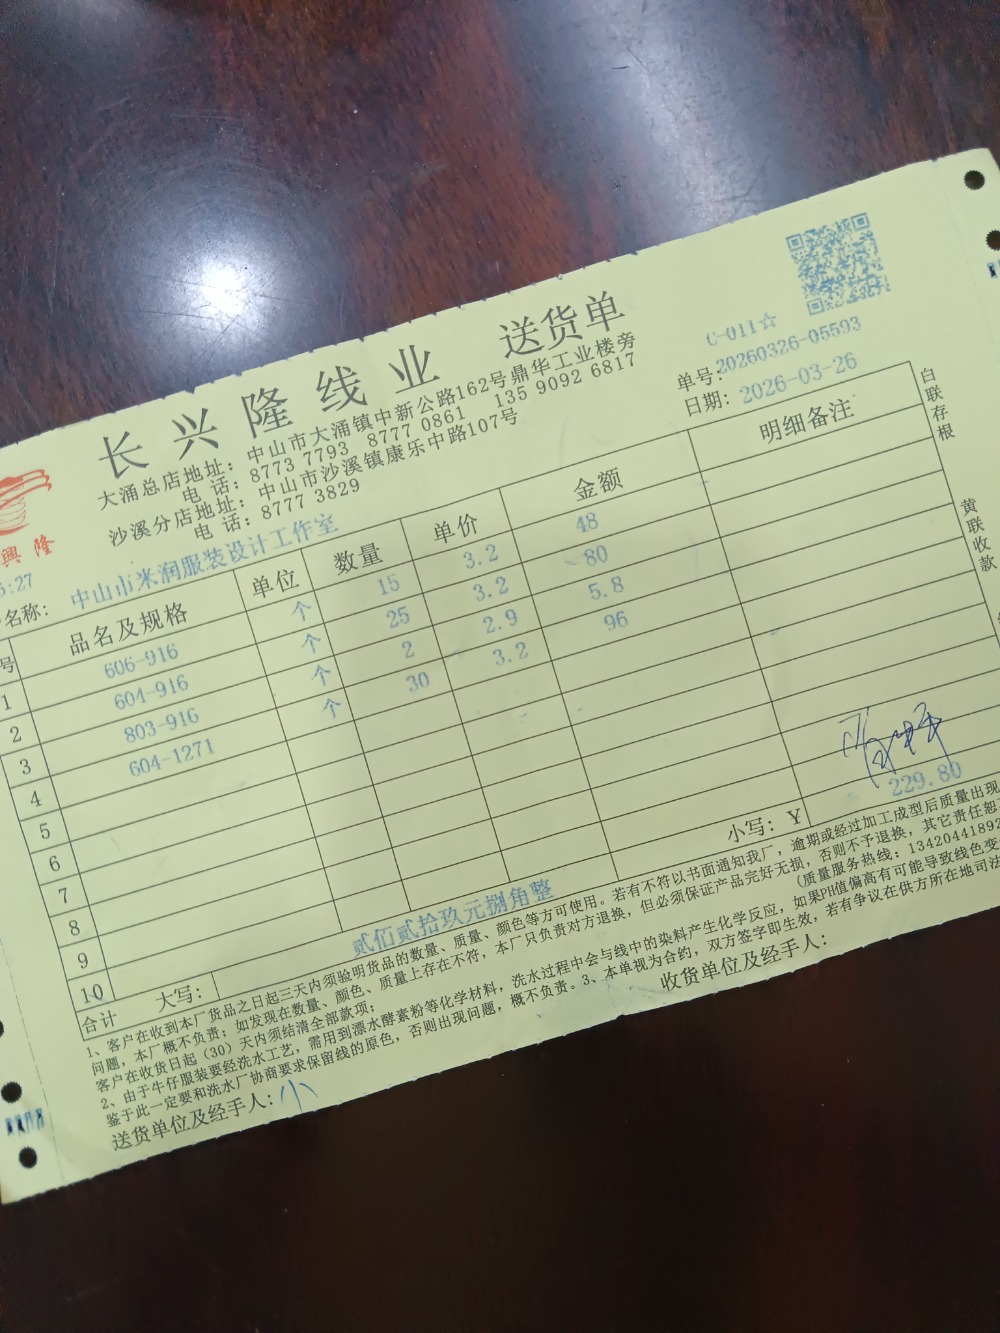 长兴隆线业 送货单
大涌总店地址：中山市大涌镇中新公路162号鼎华工业楼旁
电 话：8773 7793 8777 0861 135 9092 6817
沙溪分店地址：中山市沙溪镇康乐中路107号
电 话：8777 3829
C-011☆
单号：20260326-05593
日期：2026-03-26
興隆
:27
名称：中山市米润服装设计工作室
号 品名及规格 单位 数量 单价 金额 明细备注
1 606-916 个 15 3.2 48
2 604-916 个 25 3.2 80
3 803-916 个 2 2.9 5.8
4 604-1271 个 30 3.2 96
5
6
7
8
9
10
合计 大写：贰佰贰拾玖元捌角整 小写：¥ 229.80
白联存根
黄联收款
1、客户在收到本厂货品之日起三天内须验明货品的数量、质量、颜色等方可使用。若有不符以书面通知我厂，逾期或经过加工成型后质量出现
问题，本厂概不负责；如发现在数量、颜色、质量上存在不符，本厂只负责对方退换，但必须保证产品完好无损，否则不予退换，其它责任恕
客户在收货日起（30）天内须结清全部款项；（质量服务热线：1342044189
2、由于牛仔服装要经洗水工艺，需用到漂水酵素粉等化学材料，洗水过程中会与线中的染料产生化学反应，如果PH值偏高有可能导致线色变
鉴于此一定要和洗水厂协商要求保留线的原色，否则出现问题，概不负责。3、本单视为合约，双方签字即生效，若有争议在供方所在地司法
送货单位及经手人：小 收货单位及经手人：